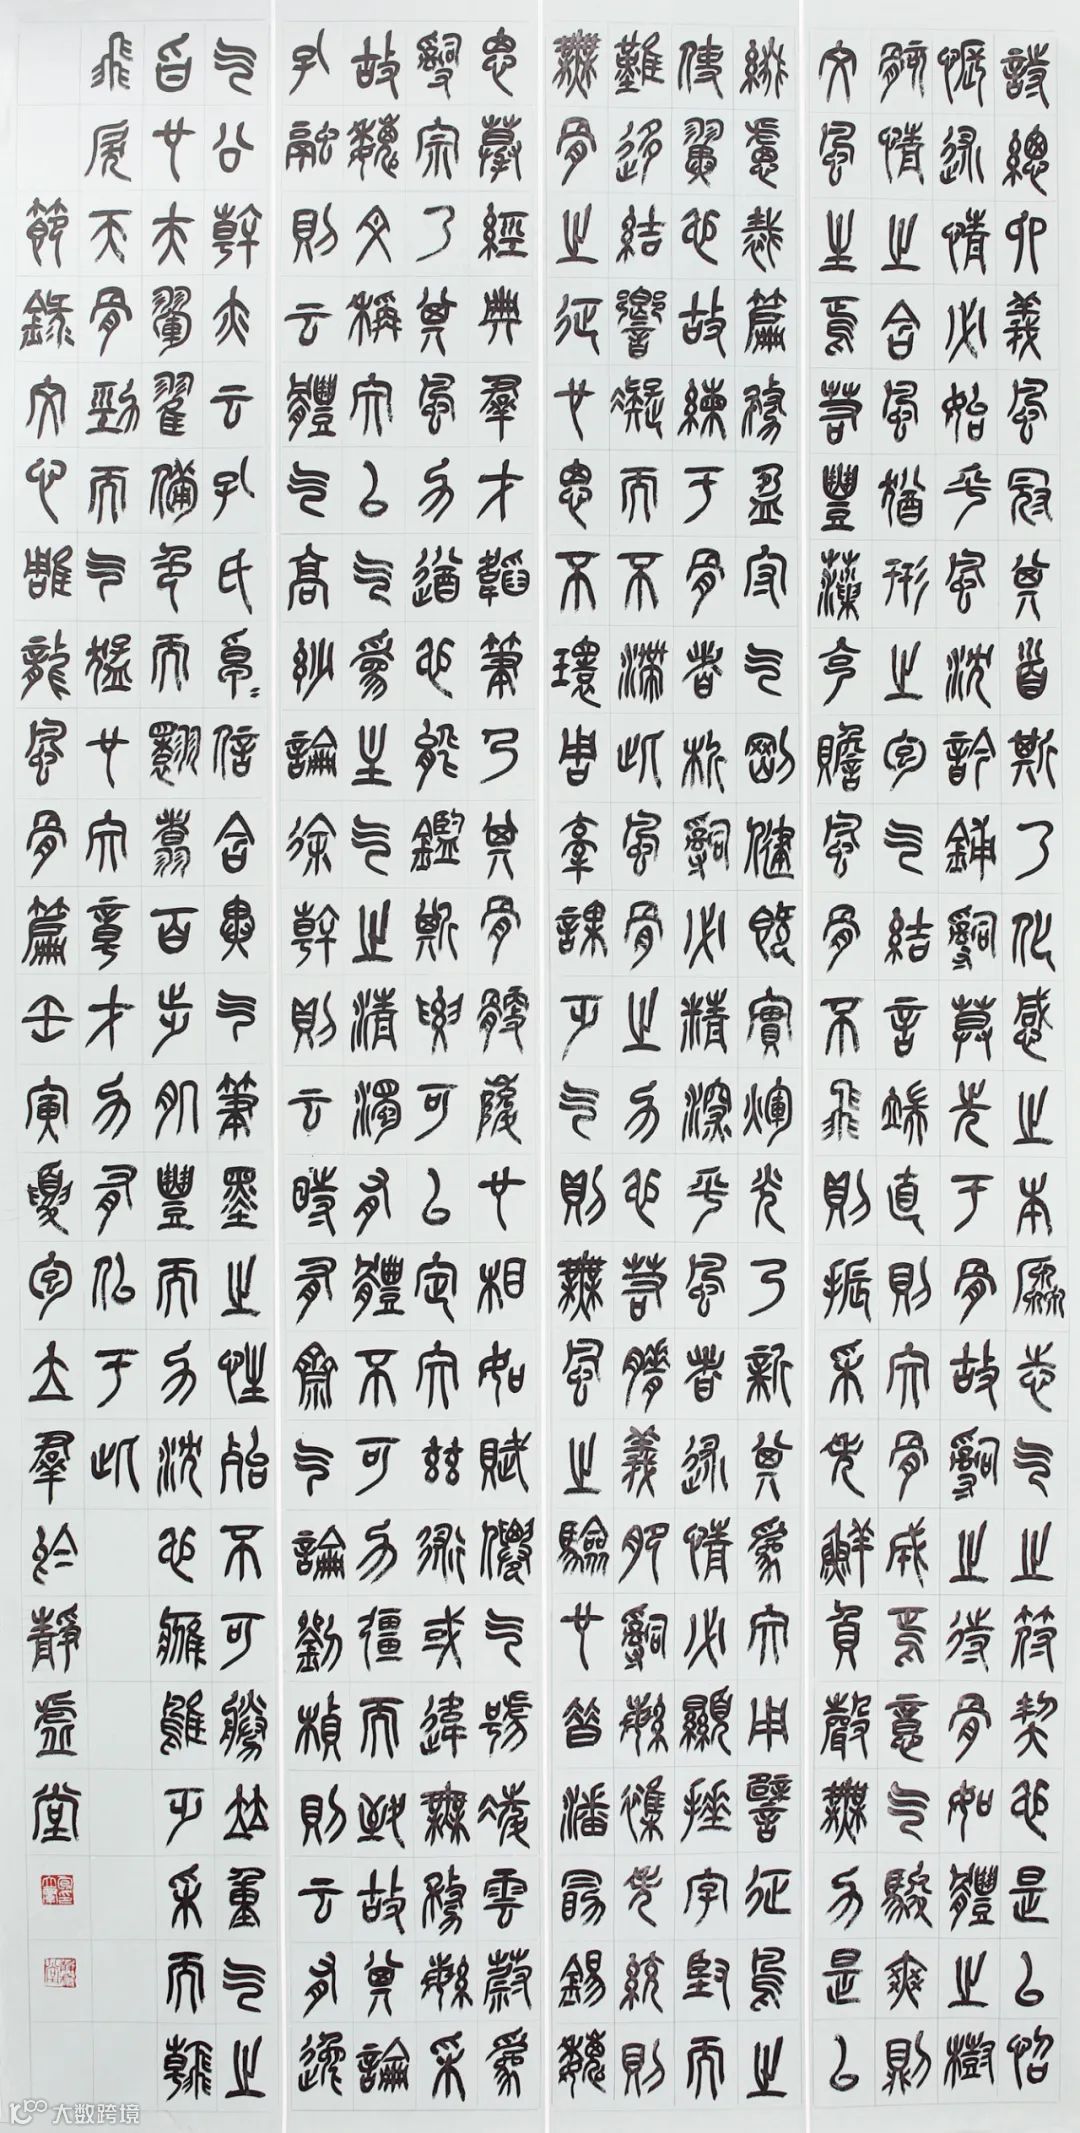 詩總六義風冠其首斯乃化感之本原志气之符契也是以怊
悵述情必始乎風沈吟鋪辭莫先于骨故辭之待骨如體之樹
骸情之含風猶形之包气結言端直則文骨成焉意气駿爽則
文風生焉若豐藻克贍風骨不飛則振采失鮮負聲無力是以
綴慮裁篇務盈守气剛健既實煇光乃新其為文用譬征鳥之
使翼也故練于骨者析辭必精深乎風者述情必顯捶字堅而
難移結響凝而不滯此風骨之力也若瘠義肥辭繁雜失統則
無骨之征也思不環周牽課乏气則無風之驗也昔潘勗錫魏
思摹經典羣才韜筆乃其骨髓峻也相如賦僊气號凌雲蔚為
辭宗乃其風力遒也能鑒斯要可以定文茲術或違無務繁采
故魏文稱文以气為主气之清濁有體不可力彊而致故其論
孔融則云體气高妙論徐幹則云時有齊气論劉楨則云有逸
气公幹亦云孔氏卓〻信含異气筆墨之性殆不可勝並重气之
旨也夫翬翟備色而翾翥百步肌豐而力沈也鷹隼乏采而翰
飛戾天骨勁而气猛也文章才力有似于此
節錄文心雕龍風骨篇壬寅夏包立羣於靜虛堂
大数跨境